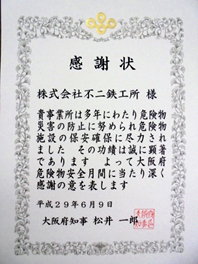 感謝状
株式会社不二鉄工所 様
貴事業所は多年にわたり危険物
災害の防止に努められ危険物
施設の保安確保に尽力され
ました その功績は誠に顕著
であります よって大阪府
危険物安全月間に当たり深く
感謝の意を表します
平成29年6月9日
大阪府知事 松井一郎